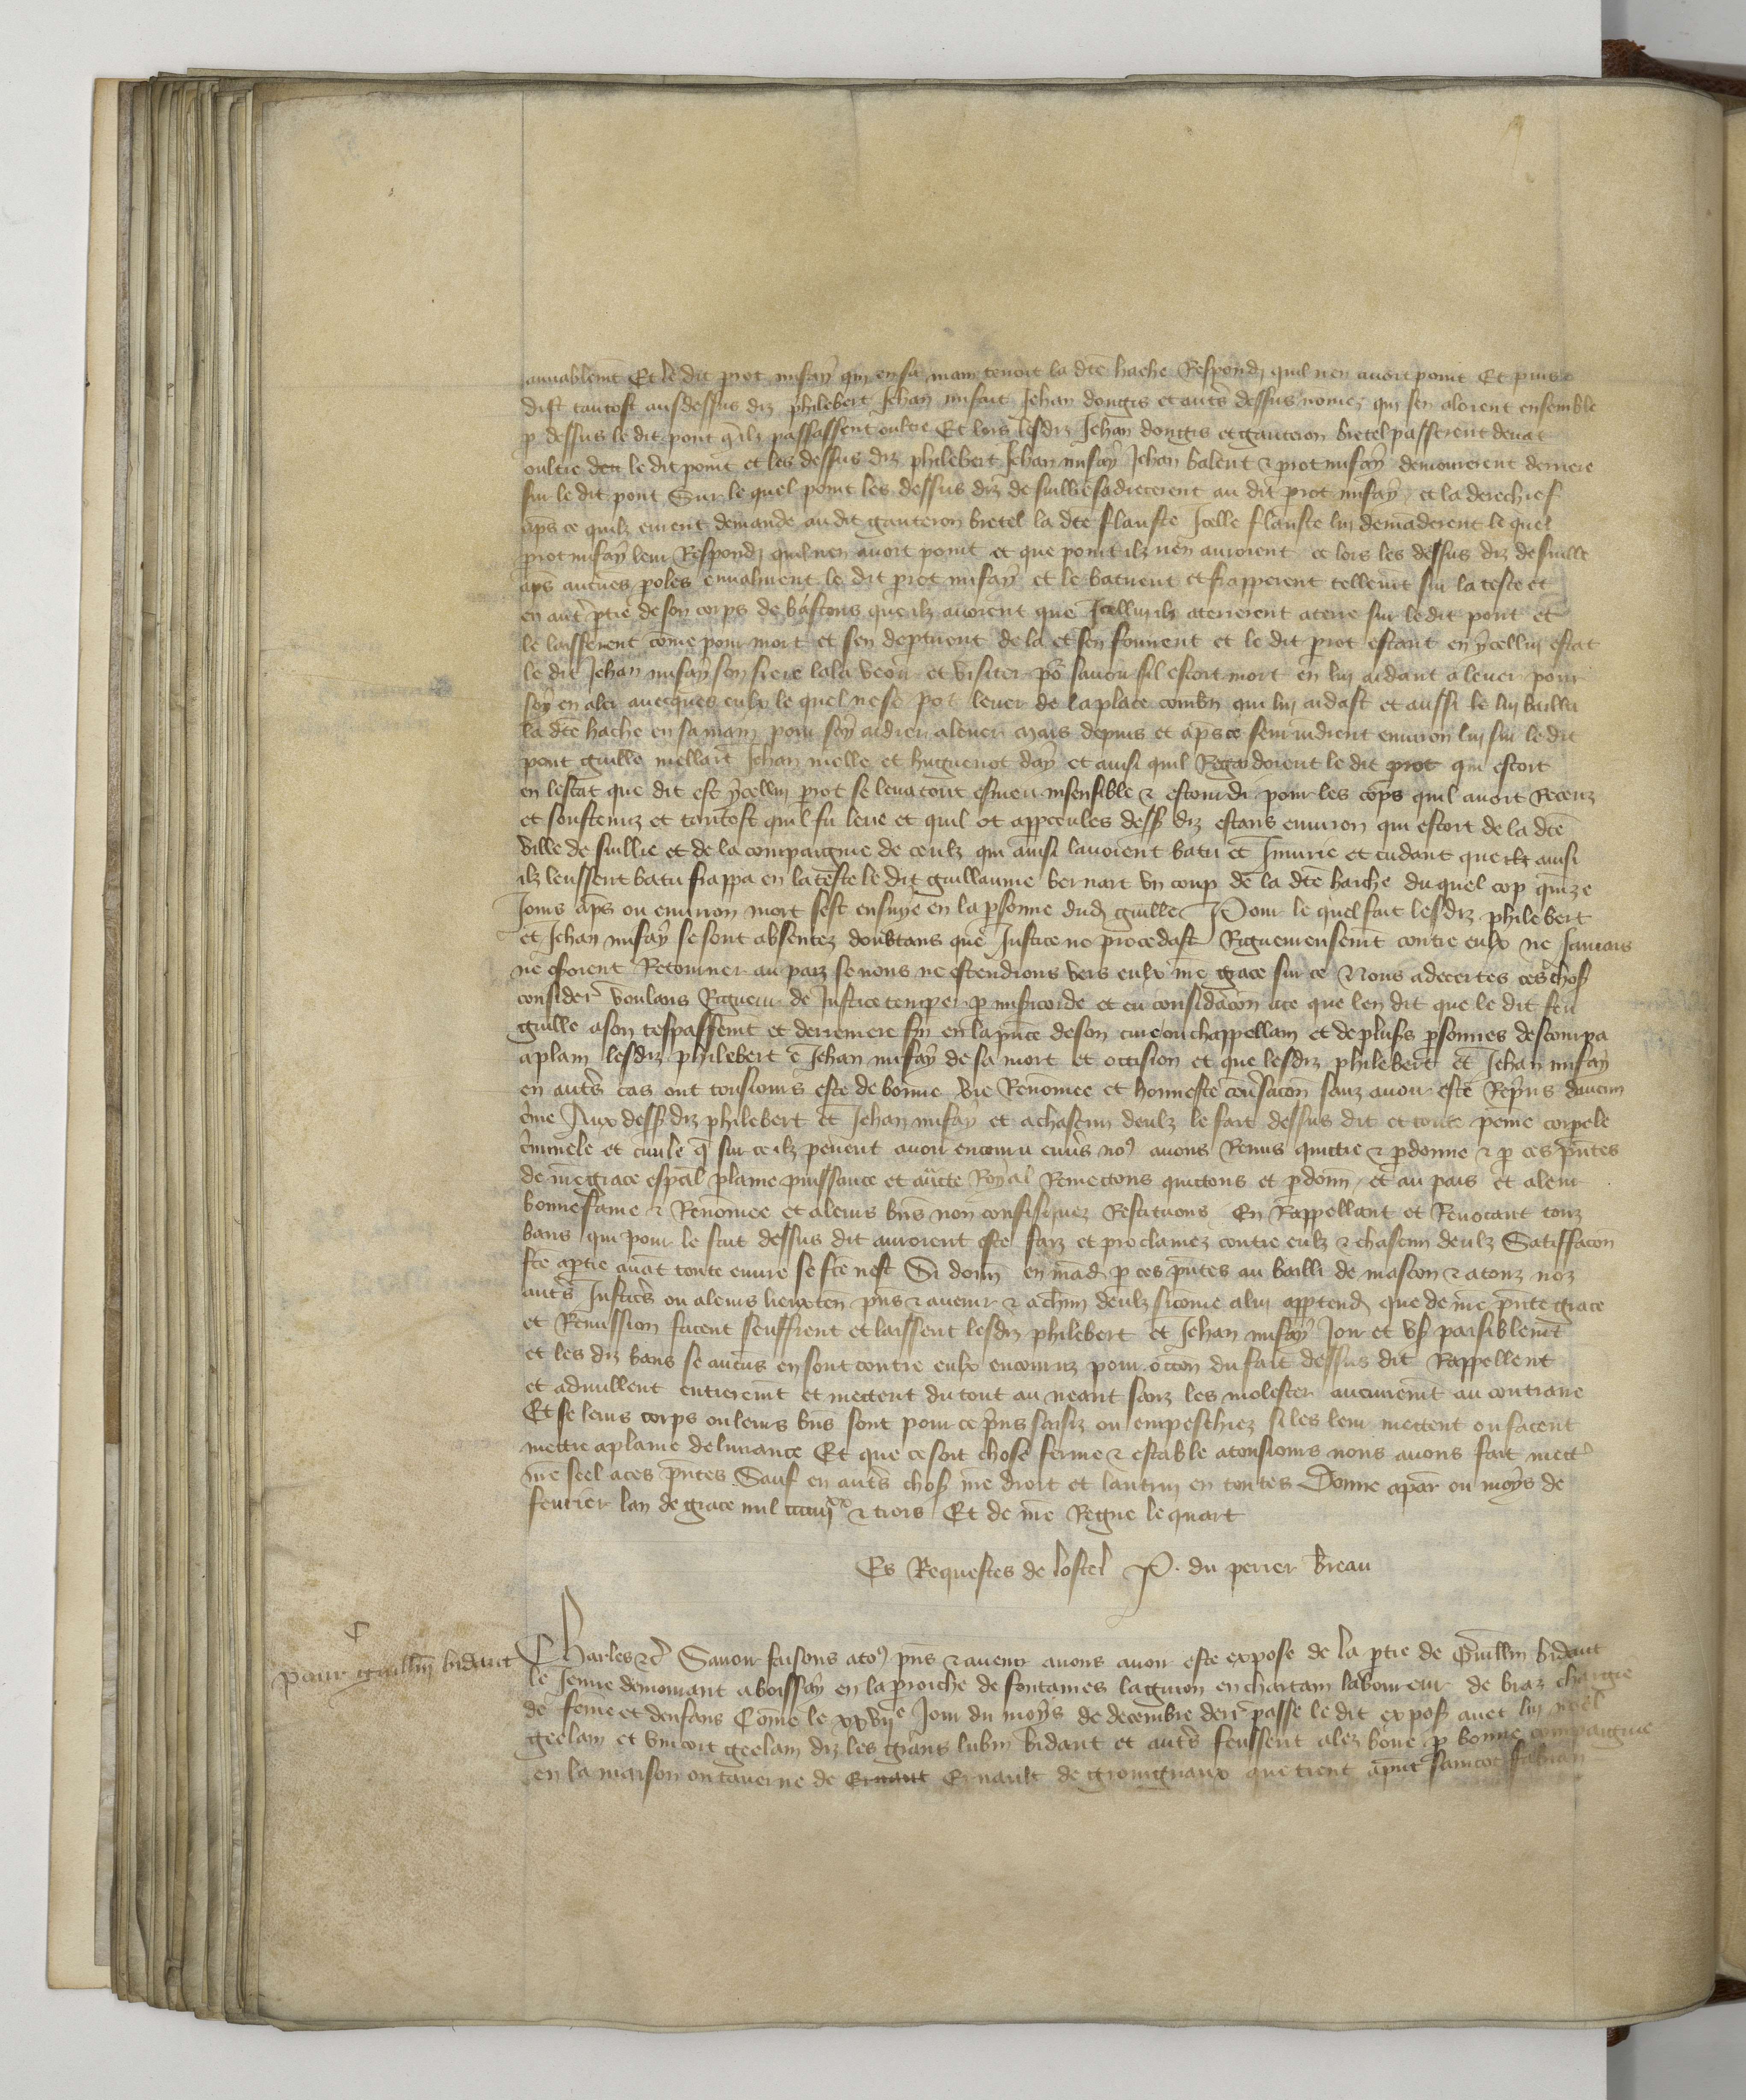 amiablemt Et le dit prot misay qui en sa main tenoit la dce hache Respondi quil nen avoit point Et puis
dist tantost ausdessus diz philebert Jehan misait Jehan dongis et autres dessus nomez qui sen aloient ensemble
p dessus le dit pont quilz passassent oultre Et lors lesdiz Jehan dongis et gauteron bretel passerent devat
oultre deu le dit pont et les dessus diz philebert Jehan misay Jehan valent & prot misay demourerent derriere
sur le dit pont Sur le quel pont les dessus diz de suillie sadrecerent au dit prot misay et la derechief
aps ce quilz eurent demande au dit gauteron bretel la dce flauste Icelle flauste lui demaderent le quel
prot misay leur Respondi quil nen avoit point et que point ilz nen auroient et lors les dessus diz de suillie
aps aucues poles envairent le dit prot misay et le batirent et frapperent tellemt sur la teste et
en autr ptie de son corps de bastons que ilz avoient que Icellui ilz aterrerent a terre sur le dit pont et
le laisserent come pour mort et sen deptirent de la et sen fouirent et le dit prot estant en ycellui estat
le dit Jehan misay son frere lala veoir et visiter po savoir sil estoit mort en lui aidant a lever pour
soy en aler avecques eulx le quel ne se pot lever de la place combn qui lui aidast et aussi le lui bailla
la dce hache en sa main pour soy aidier a lever Mais depuis et aps ce seurvidrent environ lui sur le dit
pont guille mellart Jehan melle et huguenot day et ainsi quil Regardoient le dit prot qui estoit
en lestat que dit est ycellui prot se leva tout esmeu insensible & estourdi pour les cops quil avoit Receuz
et soustenuz et tantost quil fu leve et quil ot appceu les dess diz estans environ qui estoit de la dce
ville de suillie et de la compaignie de ceulz qui ainsi lavoient batu et Iniurie et cudant que ainsi
ilz leussent batu frappa en la teste le dit guillaume bernart un coup de la dce hache du quel cop quinze
Jours aps ou environ mort sest ensuye en la psonne dud guille Pour le quel fait lesdiz philebert
et Jehan misay se sont absentez doubtans que Justice ne procedast Rigueureusemt contre eulx ne Jamais
ne oseroient Retourner au paiz se nous ne estendions vers eulx nre grace sur ce Nous adecertes ces chos
consider voulans Rigueur de Justice temper p misicorde et en considacon a ce que len dit que le dit feu
guille a son trespassemt et derreniere fin en la pnce de son cure ou chappellain et de plusrs psonnes descoupa
a plain lesdiz philebert & Jehan misay de sa mort et occision et que lesdiz philebert et Jehan misay
en autrs cas ont tousiours este de bonne vie Renomee et honneste convsacon sanz avoir este Repris daucun
crime Aux dess diz philebert et Jehan misay et a chascun deulz le fait dessus dit et toute peine corpele
criminele et civile q sur ce ilz pevent avoir encouru envs no9 avons Remis quictie & pdonne & p ces pntes
de nre grace espal plaine puissance et aucte Royal Remectons quictons et pdonn et au pais et a leur
bonne fame & Renomee et a leurs bns non confisquez Restituons En Rappellant et Revocant touz
bans qui pour le fait dessus dit auroient este faiz et proclamez contre eulz & chascun deulz Satiffacon
fce a ptie avat toute euvre se fce nest Si donn en mad p ces pntes au bailli de mascon & a touz noz
autrs Justicrs ou a leurs lieuxten pns & avenir & a chun deulz sicome a lui apptend que de nre pnte grace
et Remission facent seuffrent et laissent lesdiz philebert et Jehan misay Joir et us paisiblemt
et les diz bans se aucuns en sont contre eulx encouruz pour occon du fait dessus dit Rappellent
et adnullent entieremt et mectent du tout au neant sanz les molester aucunemt au contraire
Et se leurs corps ou leurs bns sont pour ce prins saisiz ou empeschiez si les leur mettent ou facent
mettre a plaine delivrance Et que ce soit chose ferme & estable a tousiours nous avons fait mettr
nre seel a ces pntes Sauf en autrs chos nre droit et lautrui en toutes Donne a paris ou moys de
fevrier lan de grace mil ccc iiijxx & trois Et de nre Regne le quart
Es Requestes de lostel P. du perier breau
pour guillin bidaut
Charles &c Savoir faisons a to9 pns & avenir a nous avoir este expose de la ptie de Guillin bidaut
le Jeune demourant a boissay en la proiche de fontaines laguion en chartain laboureur de braz chargie
de feme et denfans Come le xxviie Jour du moys de decembre derr passe le dit expos avec lui noel
geelain et vincot geelain diz les grans lubin bidaut et autrs feussent alez boire p bonne compaignie
en la maison ou taverne de Ernaut Ernault de grougnaux que tient a pnt fabian